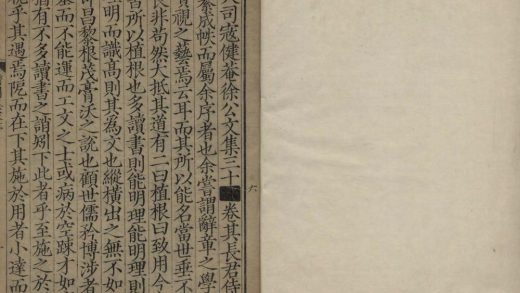 司寇健菴徐公文集三十卷其長君侍
成帙而屬余序者也余嘗謂辭章之學
視之藝焉云耳而其所以能名當世垂不
非苟然大抵其道有二曰植根曰致用今
書所以植根也多讀書則能明理能明理則
明而識高則其為文也縱橫出之無不如
昌黎根茂膏沃之說也顧世儒於博涉者
而不能運而工文之士或病於空疎才如
有不多讀書之誚矧下此者乎至施之於
乎其遇焉阨而在下其施於用者小達而
六